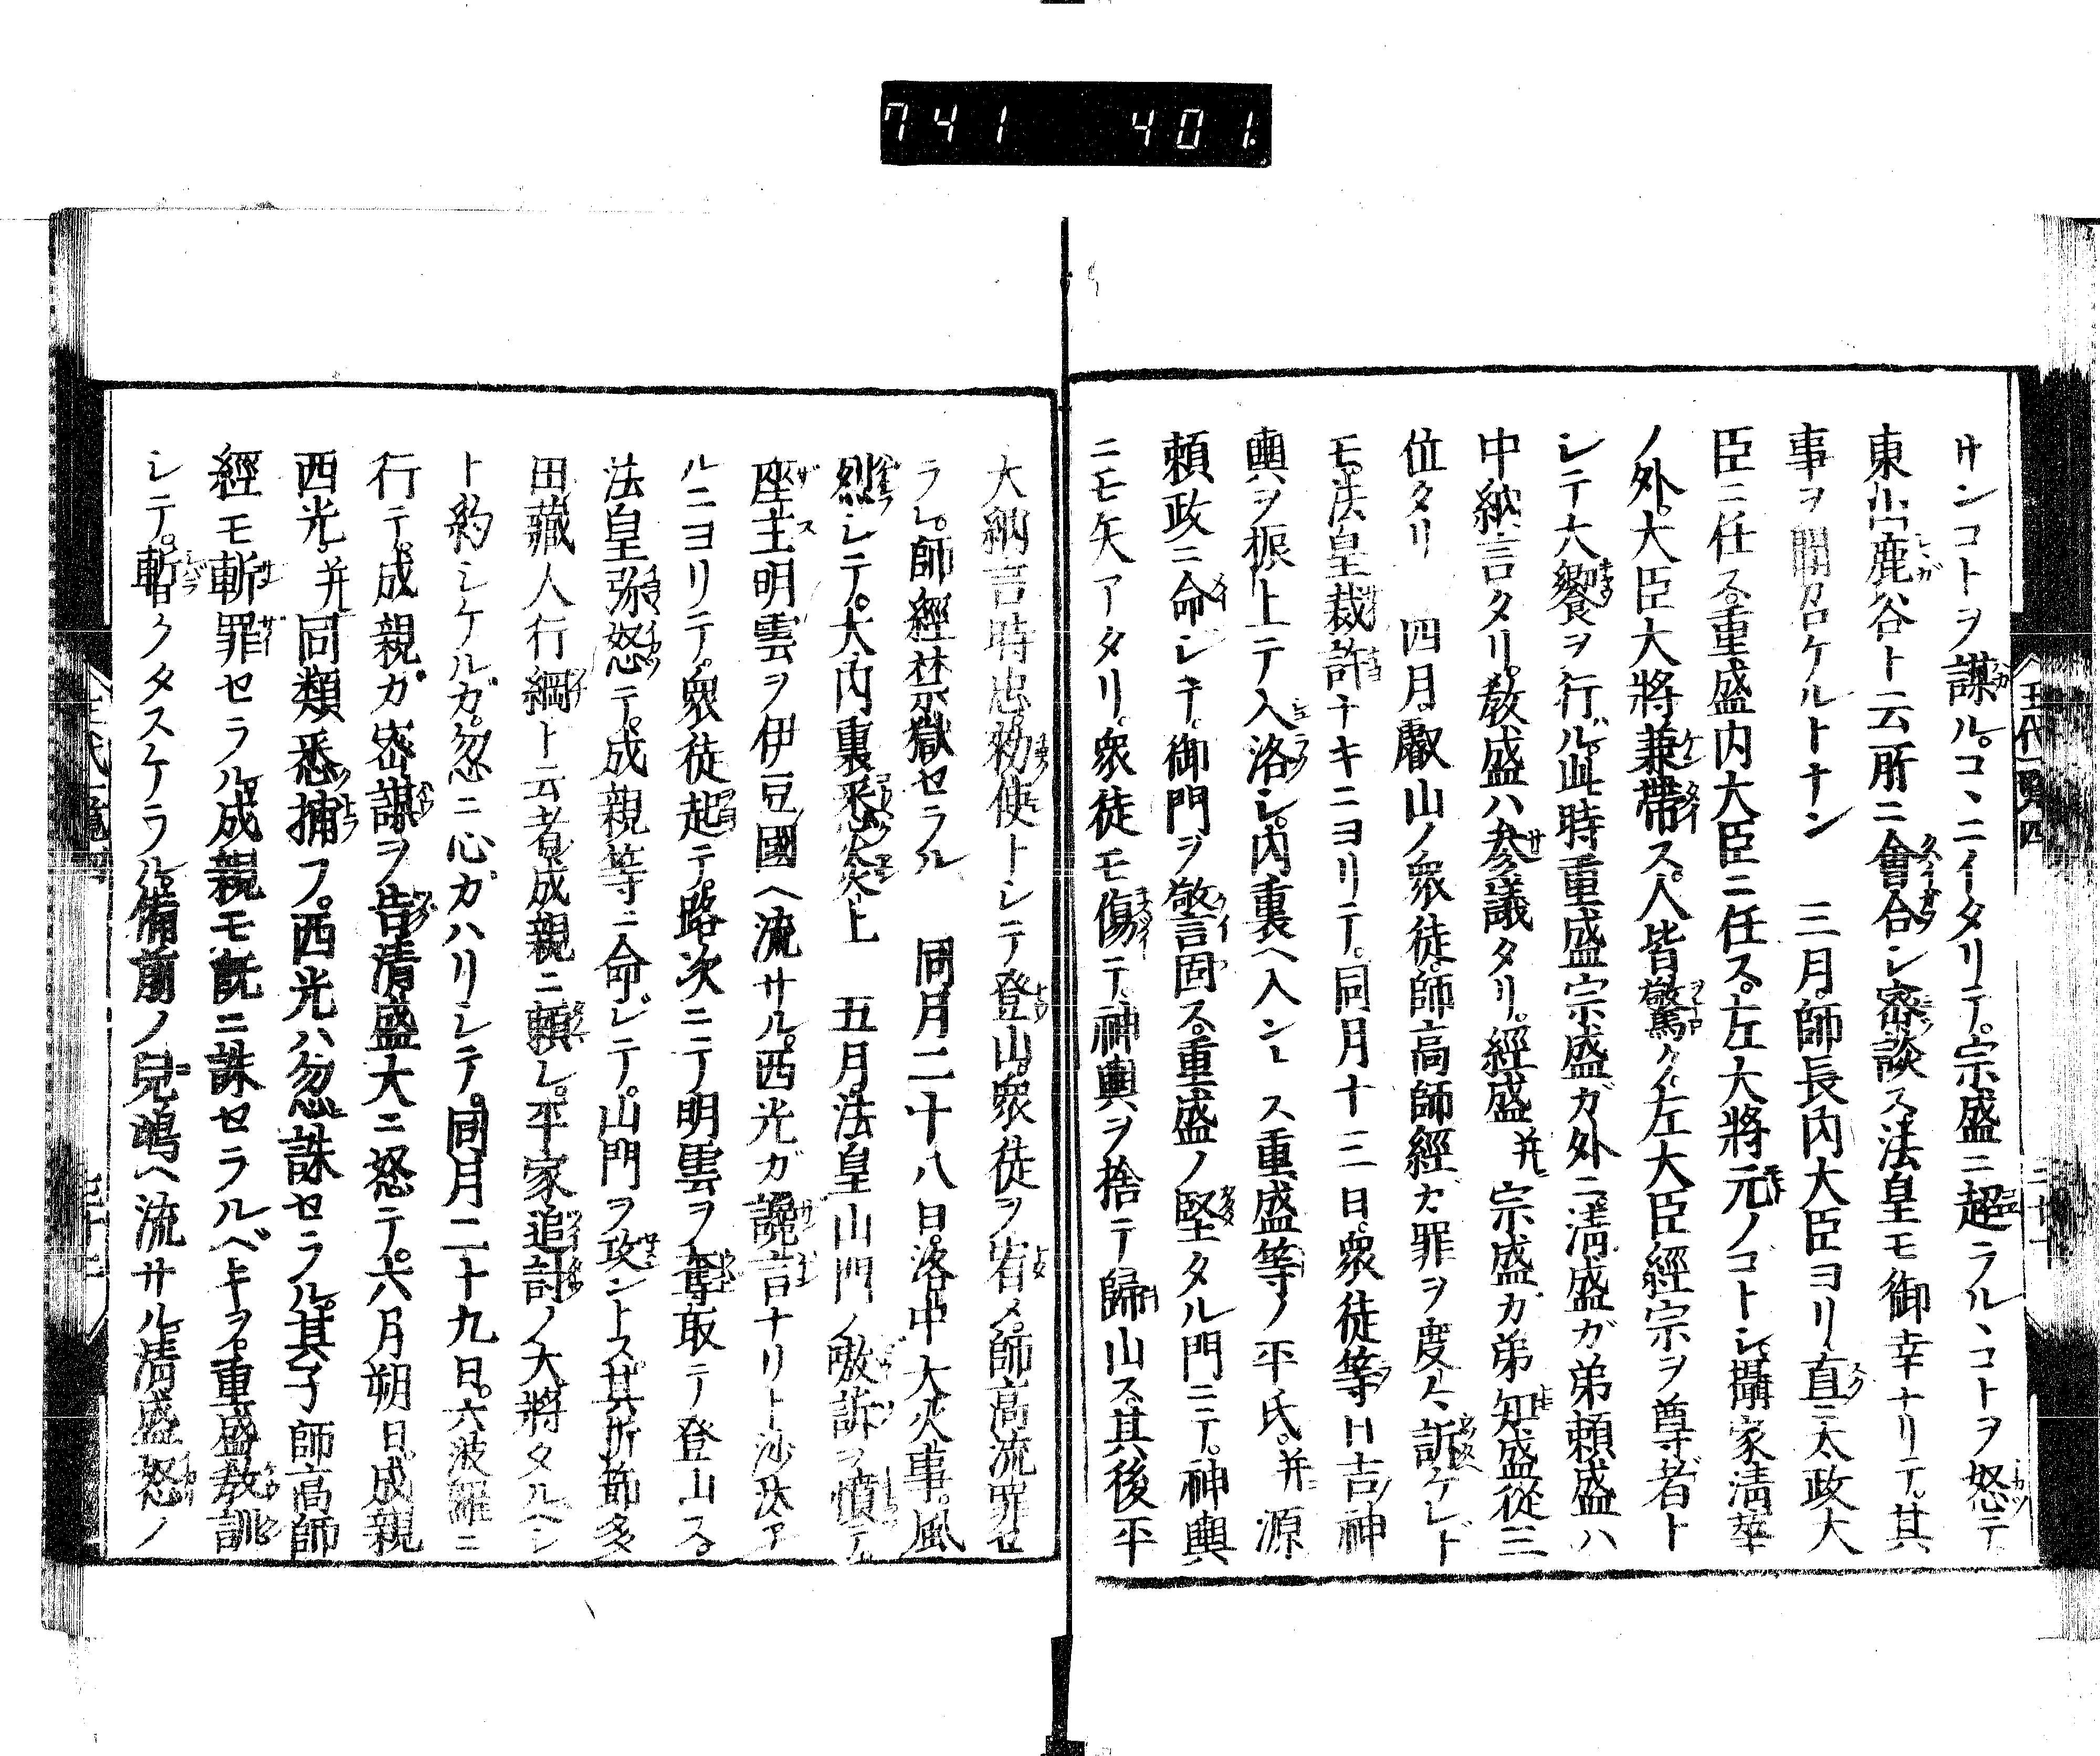 741 401
サンコトヲ謀ル。コヽニイタリテ。宗盛ニ超ラルヽコトヲ怒テ
東山鹿谷ト云所ニ會合シ密談ス法皇モ御幸ナリテ。其
事ヲ聞召ケルトナン 三月師長内大臣ヨリ直ニ太政大
臣ニ任ス。重盛内大臣ニ任ス。左大將元ノゴトシ。攝家清華
ノ外。大臣大將兼帶ス。人皆驚ク。左大臣經宗ヲ尊者ト
シテ大饗ヲ行ル。此時重盛宗盛ガ外ニ清盛ガ弟頼盛ハ
中納言タリ。教盛ハ参議タリ。經盛并宗盛ガ弟知盛從三
位タリ 四月。叡山ノ衆徒。師高師經ガ罪ヲ度々訴ケレド
モ。法皇裁許ナキニヨリテ。同月十三日。衆徒等日吉神
輿ヲ振上テ入洛シ。内裏ヘ入ントス重盛等ノ平氏。并源
頼政ニ命シテ。御門ヲ警固ス。重盛ノ堅タル門ニテ。神輿
ニモ矢アタリ。衆徒モ傷テ。神輿ヲ捨テ歸山ス。其後平
大納言時忠勅使トシテ登山。衆徒ヲ宥メ。師高流罪セ
ラレ。師經禁獄セラル 同月二十八日。洛中大火事。風
烈シテ。大内裏悉炎上 五月法皇山門ノ嗷訴ヲ憤テ
座主明雲ヲ伊豆國ヘ流サル。西光ガ讒言ナリト沙汰ア
ルニヨリテ。衆徒起テ。路次ニテ明雲ヲ奪取テ登山スル
法皇弥怒テ。成親等ニ命ジテ。山門ヲ攻ントス。其折節多
田藏人行綱ト云者成親ニ頼レ。平家追討ノ大將タルヘシ
ト約シケルガ。忽ニ心カハリシテ。同月二十九日。六波羅ニ
行テ。成親ガ密謀ヲ告清盛大ニ怒テ。六月朔日。成親
西光。并同類悉捕フ。西光ハ忽誅セラル。其子師高師
經モ斬罪セラル。成親モ既ニ誅セラルベキヲ。重盛教訓
シテ。暫クタスケラル。備前ノ兒嶋ヘ流サル。清盛怒ノ
王代一覽四